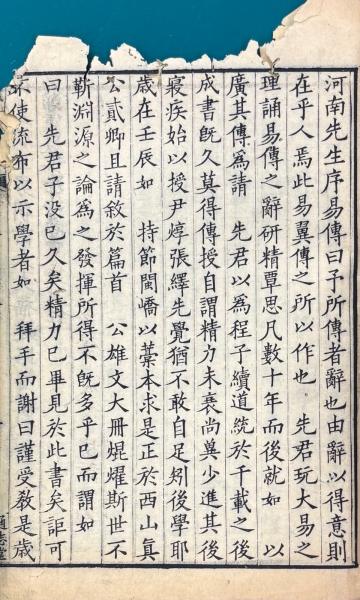 河南先生序易傳曰予所傳者辭也由辭以得意則
在乎人焉此易翼傳之所以作也 先君玩大易之
理誦易傳之辭研精覃思凡數十年而後就如 以
廣其傳為請 先君以為程子續道統於千載之後
成書旣久莫得傳授自謂精力未衰尚兾少進其後
寢疾始以授尹焞張繹先覺猶不敢自足矧後學耶
歲在壬辰如 持節閩嶠以藁本求是正於西山眞
公貳卿且請敘於篇首 公雄文大冊焜燿斯世不
靳淵源之論為之發揮所得不旣多乎已而謂如
曰 先君子沒已久矣精力已畢見於此書矣詎可
不使流布以示學者如 拜手而謝曰謹受教是歲
通志堂